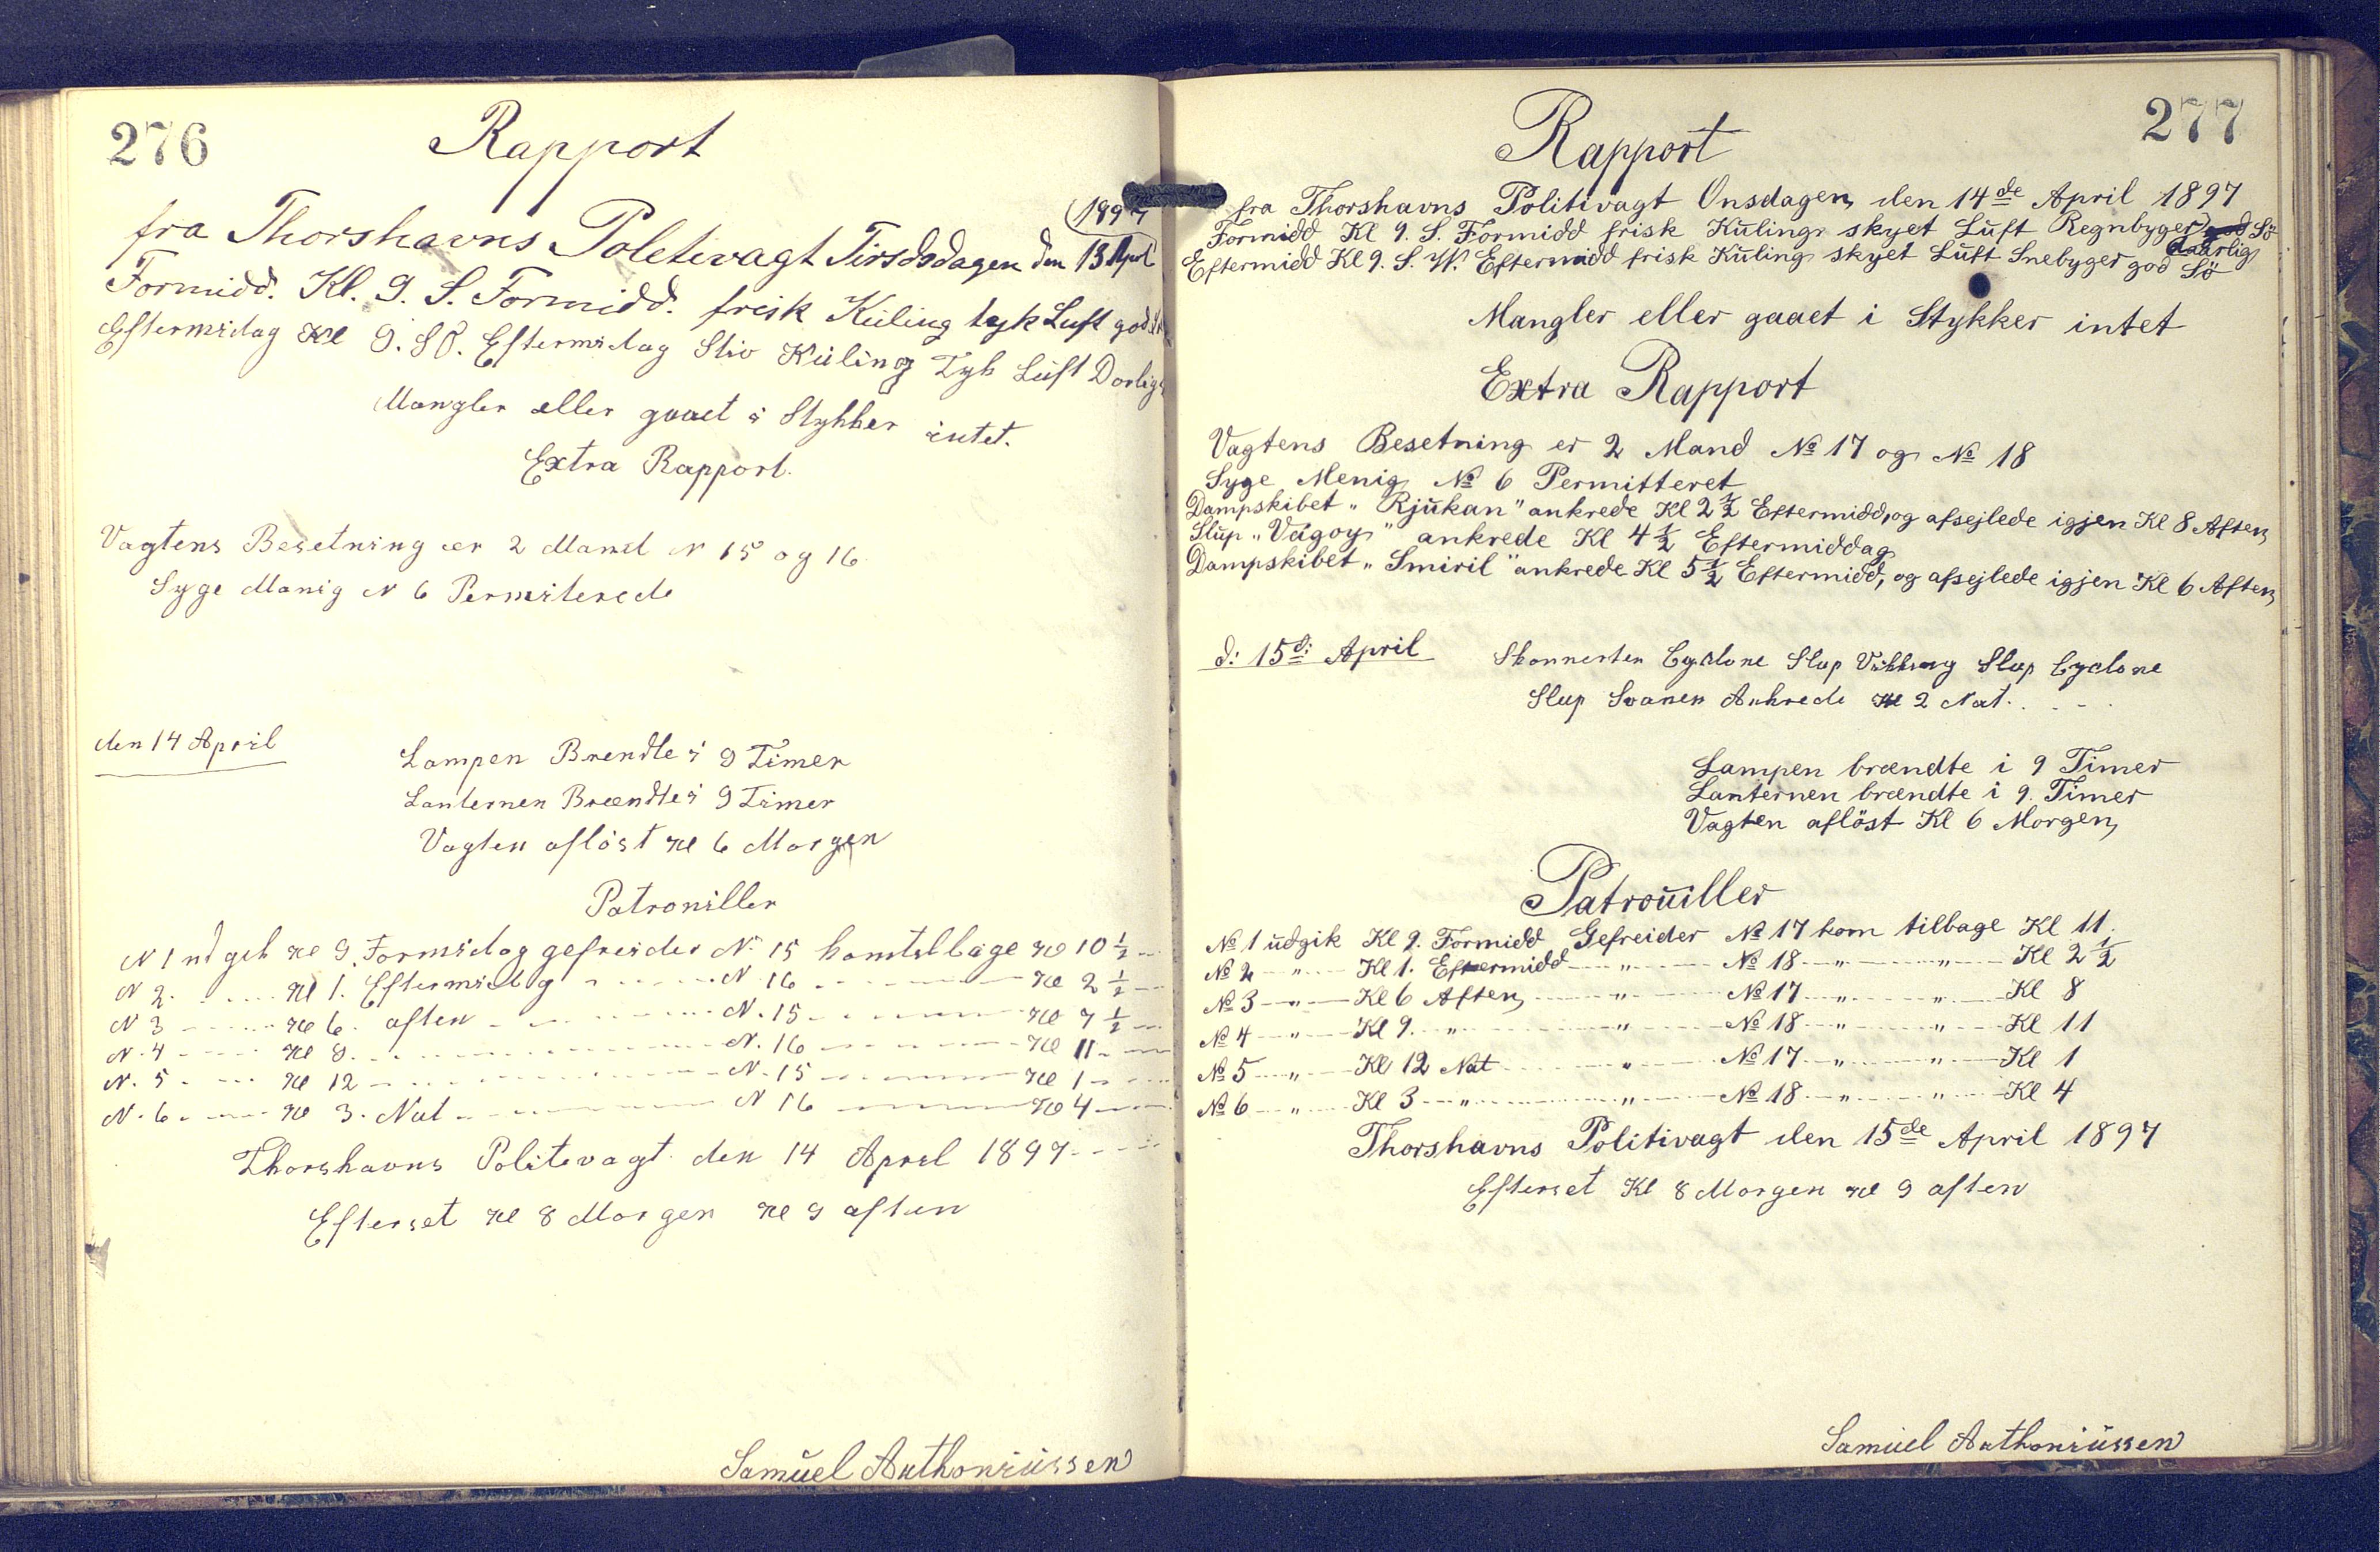 276
Rapport
(1897
fra Thorshavns Poletivagt Tirsdsdagen den 13 April
Formidd. Kl. 9. S. Formidd. frisk Küling tyk Luft god
Eftermidag Kl 9. S O. Eftermidag Stiv Küling Tyk Lüft Dorlig
Mangler eller gaaet i Stykker intet.
Extra Rapport.
Vagtens Besetning er 2 Mand N 15 og 16
Syge Manig N 6 Permiterede
den 14 April
Lampen Brendte i 9 Timer
Lanternen Brændte i 9 Timer
Vagten afløst Kl 6 Morgen
Patroniller
N 1 ud gik Kl 9. Formidag gefreider N. 15 komtilbage Kl 10 1/2 -
N 2. - - - - Kl 1. Eftermidag - - - - - N 16 - - - - - Kl 2 1/2 -
N 3 - - - - Kl 6. aften - - - - - N. 15 - - - - - Kl 7 1/2 -
N. 4 - - - - Kl 9. - - - - - N. 16 - - - - - Kl 11 - -
N. 5 - - - - Kl 12 - - - - - N. 15 - - - - - Kl 1 - -
N. 6 - - - - Kl 3. Nat - - - - - N 16 - - - - - Kl 4 - -
Thorshavns Politevagt den 14 April 1897 - - - -
Efterset Kl 8 Morgen Kl 9 aften
Samüel Anthoniüssen
277
Rapport
fra Thorshavns Politivagt Onsdagen den 14de April 1897
Formidd Kl 9. S. Formidd frisk Küling skyet Lüft Regnbyger god Sö
daarlig
Eftermidd Kl 9. S. W. Eftermidd frisk Küling skyet Lüft Snebyger god Sö
Mangler eller gaaet i Stykker intet
Extra Rapport
Vagtens Besetning er 2 Mand No 17 og No 18
Syge Menig No 6 Permitteret
Dampskibet „ Rjükan " ankrede Kl 2 1/2 Eftermidd, og afsejlede igjen Kl 8 Aften
Slüp „ Vágoy " ankrede Kl 4 1/2 Eftermiddag
Dampskibet „ Smiril " ankrede Kl 5 1/2 Eftermidd, og afsejlede igjen Kl 6 Aften
d: 15d: April
Skonnerten Cyclone Slup Vikking Slup Cyclone
Slup Svanen Ankrede Kl 2 Nat. . - -
Lampen brændte i 9 Timer
Lanternen brændte i 9. Timer
Vagten aflöst Kl 6 Morgen
Patroüiller
No 1 üdgik Kl 9. Formidd Gefreider No 17 kom tilbage Kl 11.
No 2 - „ - Kl 1. Eftermidd - „ - No 18 - „ - „ - Kl 2 1/2
No 3 - „ - Kl 6 Aften - „ - No 17 - „ - „ - Kl 8
No 4 - „ - Kl 9. „ - „ - No 18 - „ - „ - Kl 11
No 5 - „ - Kl 12 Nat - „ - No 17 - „ - „ - Kl 1
No 6 - „ - Kl 3 - „ - „ - No 18 - „ - „ - Kl 4
Thorshavns Politivagt den 15de April 1897
Efterset Kl 8 Morgen Kl 9 aften
Samüel Anthoniüssen